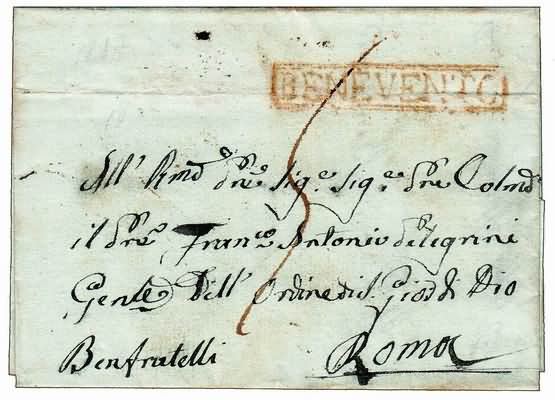 BENEVENTO
All' Rmd Pre Sigr Sigr Pre Colmo
il Pre Franco Antonio Pelegrini
Genle Dell' Ordine di S Gio di Dio
Benfratelli Roma